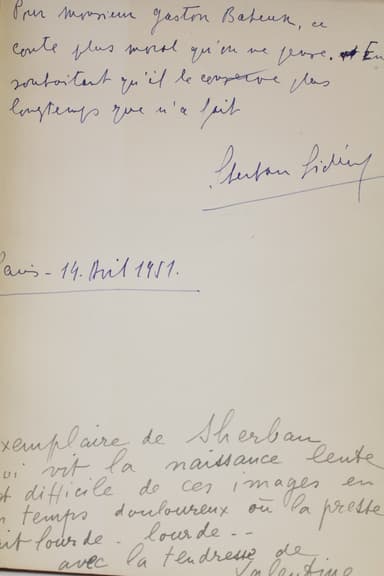 Pour Monsieur Gaston Bateuk, ce
conte plus moral qu'on ne pense. En
souhaitant qu'il le conserve plus
longtemps que n'a fait
Sherban Sidéry
Paris - 14. Avril 1951.
xemplaire de Sherban
ui vit la naissance lente
t difficile de ces images en
temps douloureux où la presse
it lourde - lourde --
avec la tendresse de
Valentine